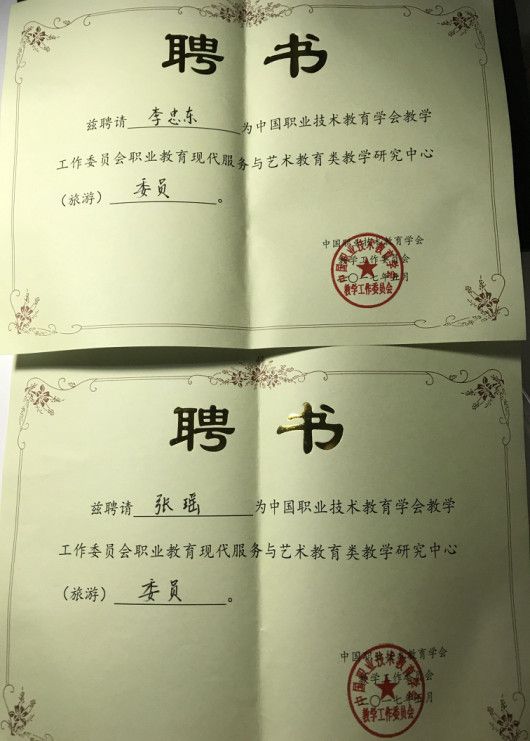 聘书
兹聘请 李忠东 为中国职业技术教育学会教学
工作委员会职业教育现代服务与艺术教育类教学研究中心
（旅游） 委员 。
中国职业技术教育学会
教学工作委员会
二〇一七年五月
中国职业技术教育学会
教学工作委员会
聘书
兹聘请 张瑶 为中国职业技术教育学会教学
工作委员会职业教育现代服务与艺术教育类教学研究中心
（旅游） 委员 。
中国职业技术教育学会
教学工作委员会
二〇一七年五月
中国职业技术教育学会
教学工作委员会